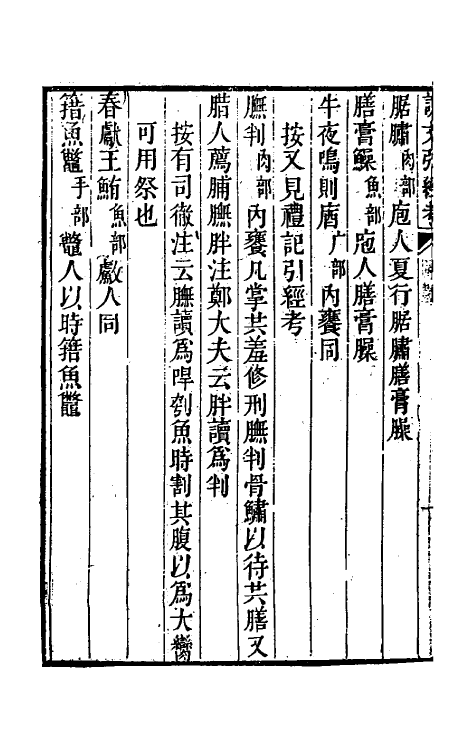 說文引經考
腒鱐肉部庖人夏行腒鱐膳膏臊
膳膏鱢魚部庖人膳膏臊
牛夜鳴則庮广部內饔同
按又見禮記引經考
膴判肉部內饔凡掌共羞修刑膴判骨鱐以待共膳又
腊人薦脯膴胖注鄭大夫云胖讀為判
按有司徹注云膴讀為冔刳魚時割其腹以為大臠
可用祭也
春獻王鮪魚部䱷人同
籍魚鼈手部鼈人以時籍魚鼈